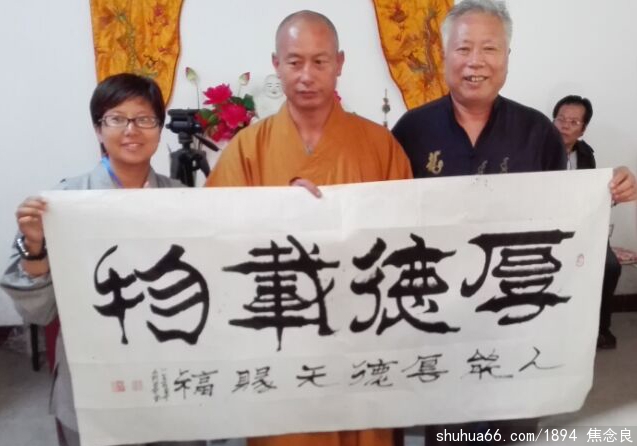 厚德載物
人能厚德天賜福
shuhua66.com/1894 焦念良